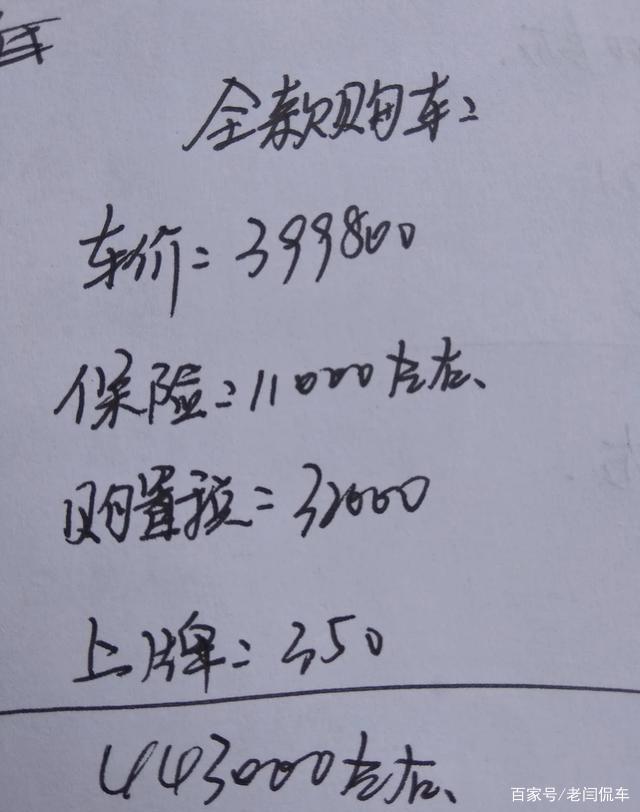 全款购车:
车价:399800
保险:11000左右、
购置税:32000
上牌:350
443000左右、
百家号/老闫侃车